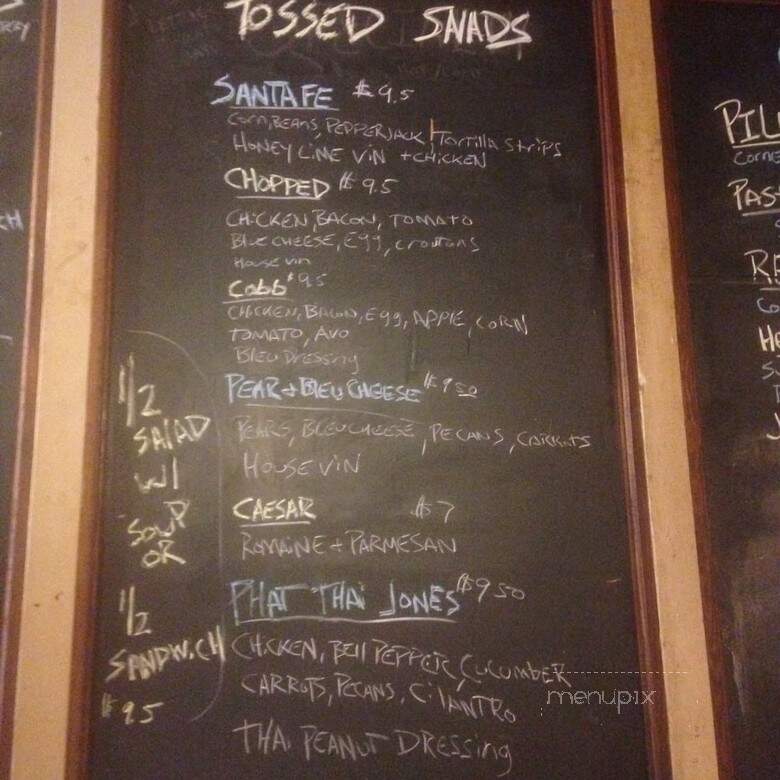 TOSSED SALADS
SANTA FE $9.5
Corn, BEANS, PEPPERJACK, Tortilla Strips
HONEY LIME VIN + CHICKEN
CHOPPED $9.5
CHICKEN, BACON, TOMATO
BLUE CHEESE, Egg, croutons
House vin
Cobb $9.5
CHICKEN, BACON, Egg, APPLE, CORN
TOMATO, AVO
BLEU Dressing
PEAR + BLEU CHEESE $9 50
PEARS, BLEU CHEESE, PECANS, CARROTS
HOUSE VIN
CAESAR $7
ROMAINE + PARMESAN
PHAT THAI JONES $9 50
CHICKEN, BEll PEPPER, CUCUMBER
CARROTS, PECANS, CilANTRO
THAI PEANUT DRESSING
1/2
SALAD
W/
SOUP
OR
1/2
SANDWICH
$9.5
PAS
menupix